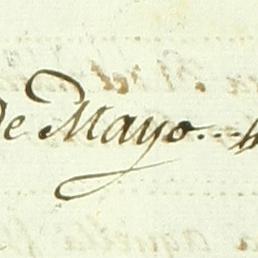 de Mayo...